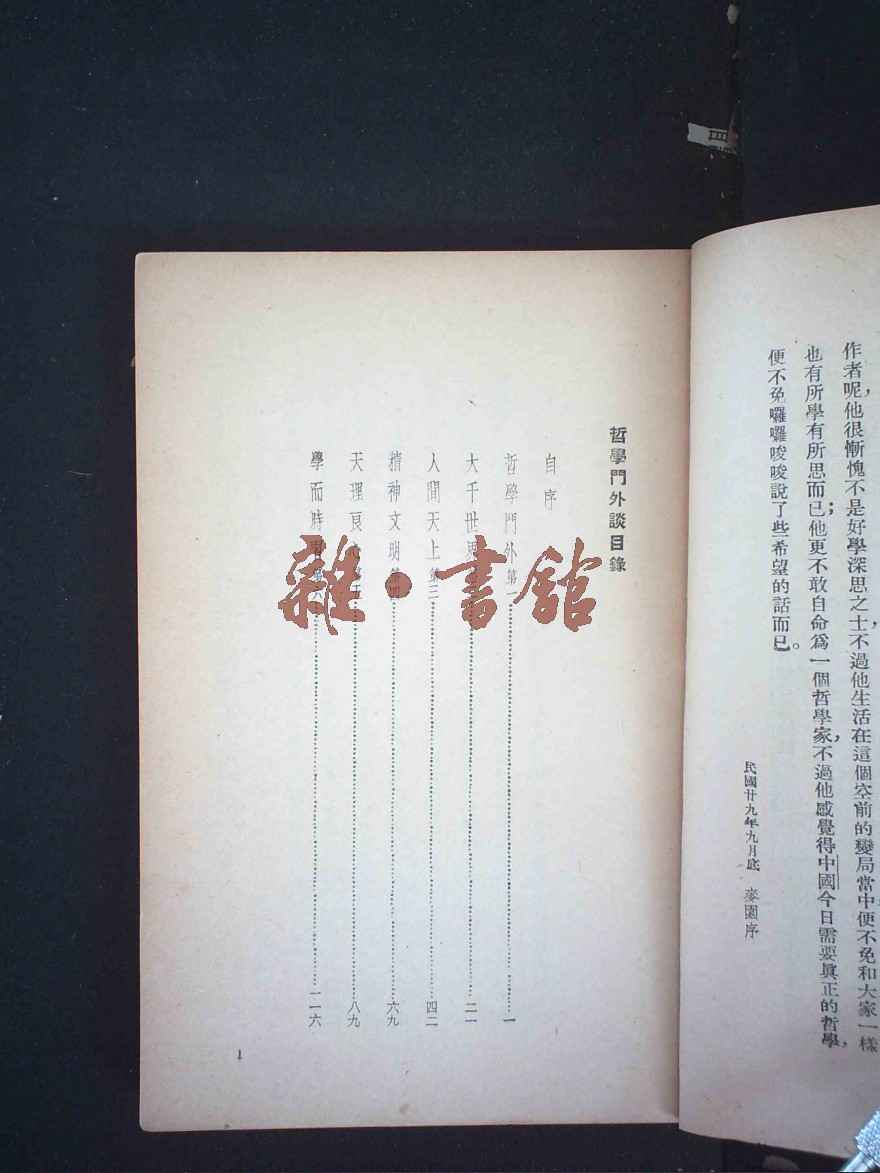 作者呢，他很慚愧不是好學深思之士，不過他生活在這個空前的變局當中便不免和大家一樣
也有所學有所思而已；他更不敢自命爲一個哲學家，不過他感覺得中國今日需要眞正的哲學，
便不免囉囉唆唆說了些希望的話而已。
民國廿九年九月底 麥園序
哲學門外談目錄
自序
哲學門外第一……一
大千世界……二一
人間天上第三……四二
精神文明第四……六九
天理良心第五……八九
學而時習第六……一一六
1
雜·書館